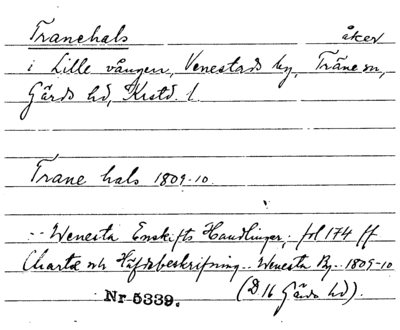 Tranehals åker
i Lille vången, Venestads by, Träne sn,
Gärds hd, Krstd. l.
Trane hals 1809-10.
-- Wenesta Enskifts Handlingar, fol 174 ff
Charta och Häfdebeskrifning.. Wenesta By.. 1809-10
Nr 5339. (D 16 Gärds hd).